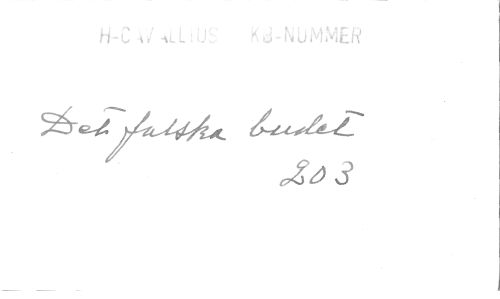 H-CAVALLIUS KB-NUMMER
Det falska budet
203